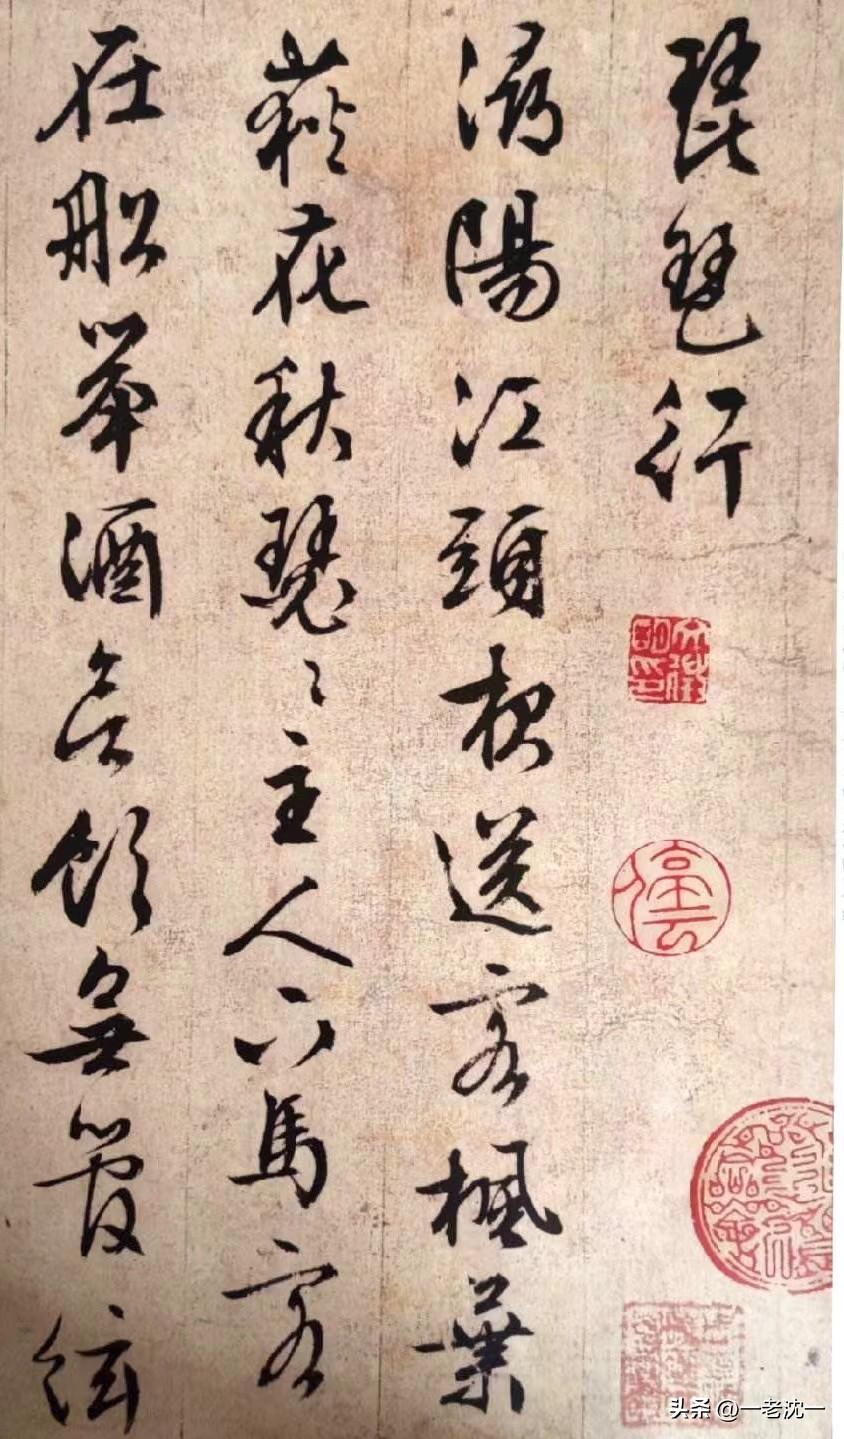 琵琶行
潯陽江頭夜送客楓葉
荻花秋瑟〻主人下馬客
在船舉酒欲飲無管絃
文徵明印
停云
头条 @一老沈一